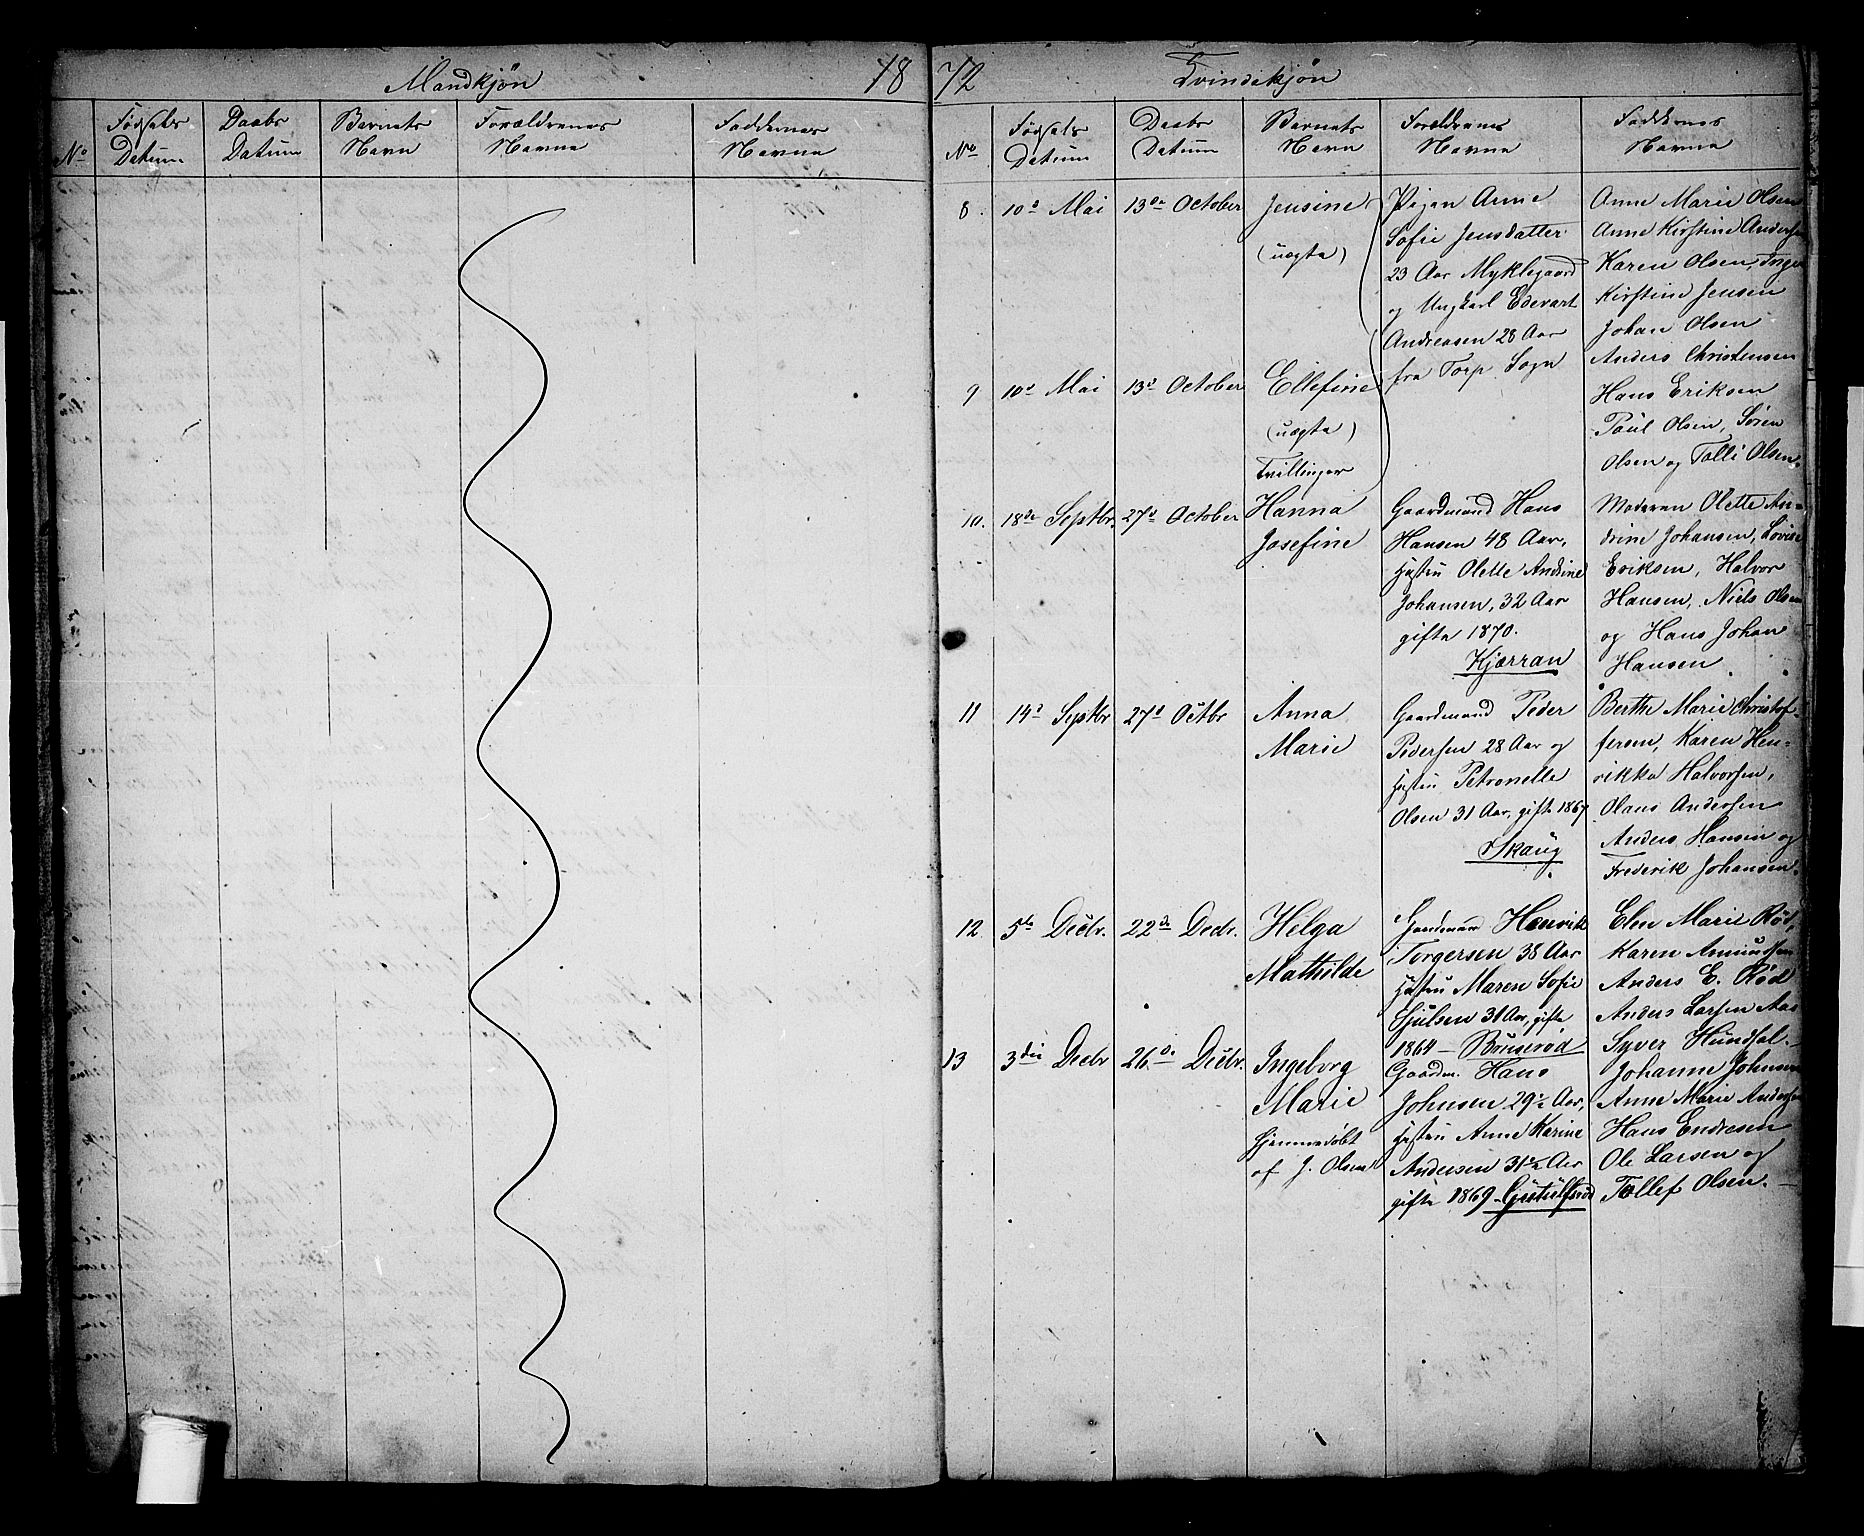 Mandkjøn 18
No Fødsels Datum Daabs Datum Barnets Navn Forældrenes Navne Faddernes Navne
72 Qvindekjøn
No Fødsels Datum Daabs Datum Barnets Navn Forældrenes Navne Faddernes Navne
8. 10de Mai 13de October Jensine
(uægte)
Pigen Anne
Sofie Jensdatter
23 Aar Myklegaard
og Ungkarl Edevart
Andreasen 28 Aar
fra Torp Sogn
Anne Marie Olsen
Anne Kirstine Andersen
Karen Olsen, Inger
Kirstine Jensen
Johan Olsen
Anders Christensen
9 10d Mai 13d October Ellefine
(uægte)
Tvillinger
Hans Eriksen
Paul Olsen, Søren
Olsen og Tolli Olsen.
10. 18de Septbr. 27d October Hanna
Josefine
Gaardmand Hans
Hansen 48 Aar,
Hustru Olette Andrine
Johansen, 32 Aar
gifte 1870.
Kjærran
Moderen Olette An-
drine Johansen, Lovise
Eriksen, Halvor
Hansen, Niels Olsen
og Hans Johan
Hansen
11 14d Septbr 27d Octbr Anna
Marie
Gaardmand Peder
Pedersen 28 Aar og
Hustru Petronelle
Olsen 31 Aar, gifte 1867
Skaug
Berthe Marie Christof-
fersen, Karen Hen-
rikke Halvorsen,
Olaus Andersen
Anders Hansen og
Frederik Johansen.
12. 5te Decbr. 22de Decbr. Helga
Mathilde
Gaardmand Henrik
Torgersen 38 Aar
Hustru Maren Sofie
Sjulsen 31 Aar, gifte
1864 — Bøuserød
Elen Marie Röd,
Karen Amundsen
Anders E. Röd
Anders Larsen Aas
Syver Hundsal.
13 3die Decbr 26de Decbr. Ingeborg
Marie
hjemmedøbt
af J. Olsen
Gaardm. Hans
Johnsen 29½ Aar,
Hustru Anne Karine
Andersen 31½ Aar
gifte 1869 Gustulfsrød
Johanne Johnsen
Anne Marie Andersen
Hans Endresen
Ole Larsen og
Tollef Olsen.